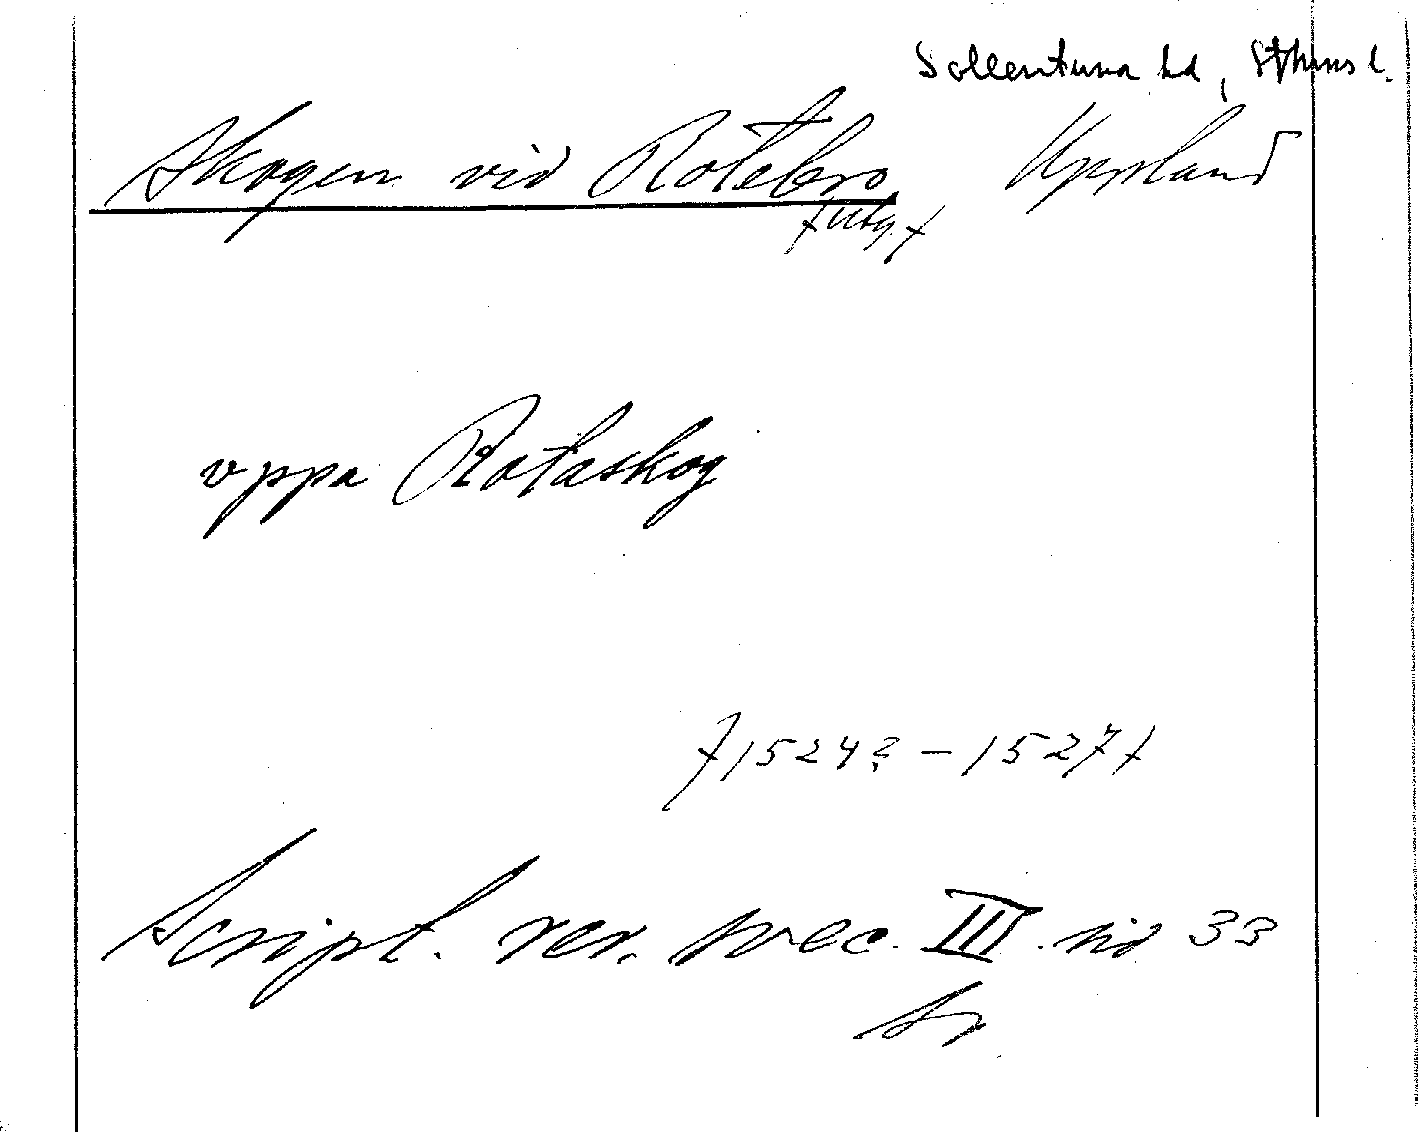 Sollentuna hd, Sthms l.
Skogen vid Rotebro Uppland
/utg./
vppa Rotaskog
/1524?-1527/
Script. rer. svec. III. sid 33